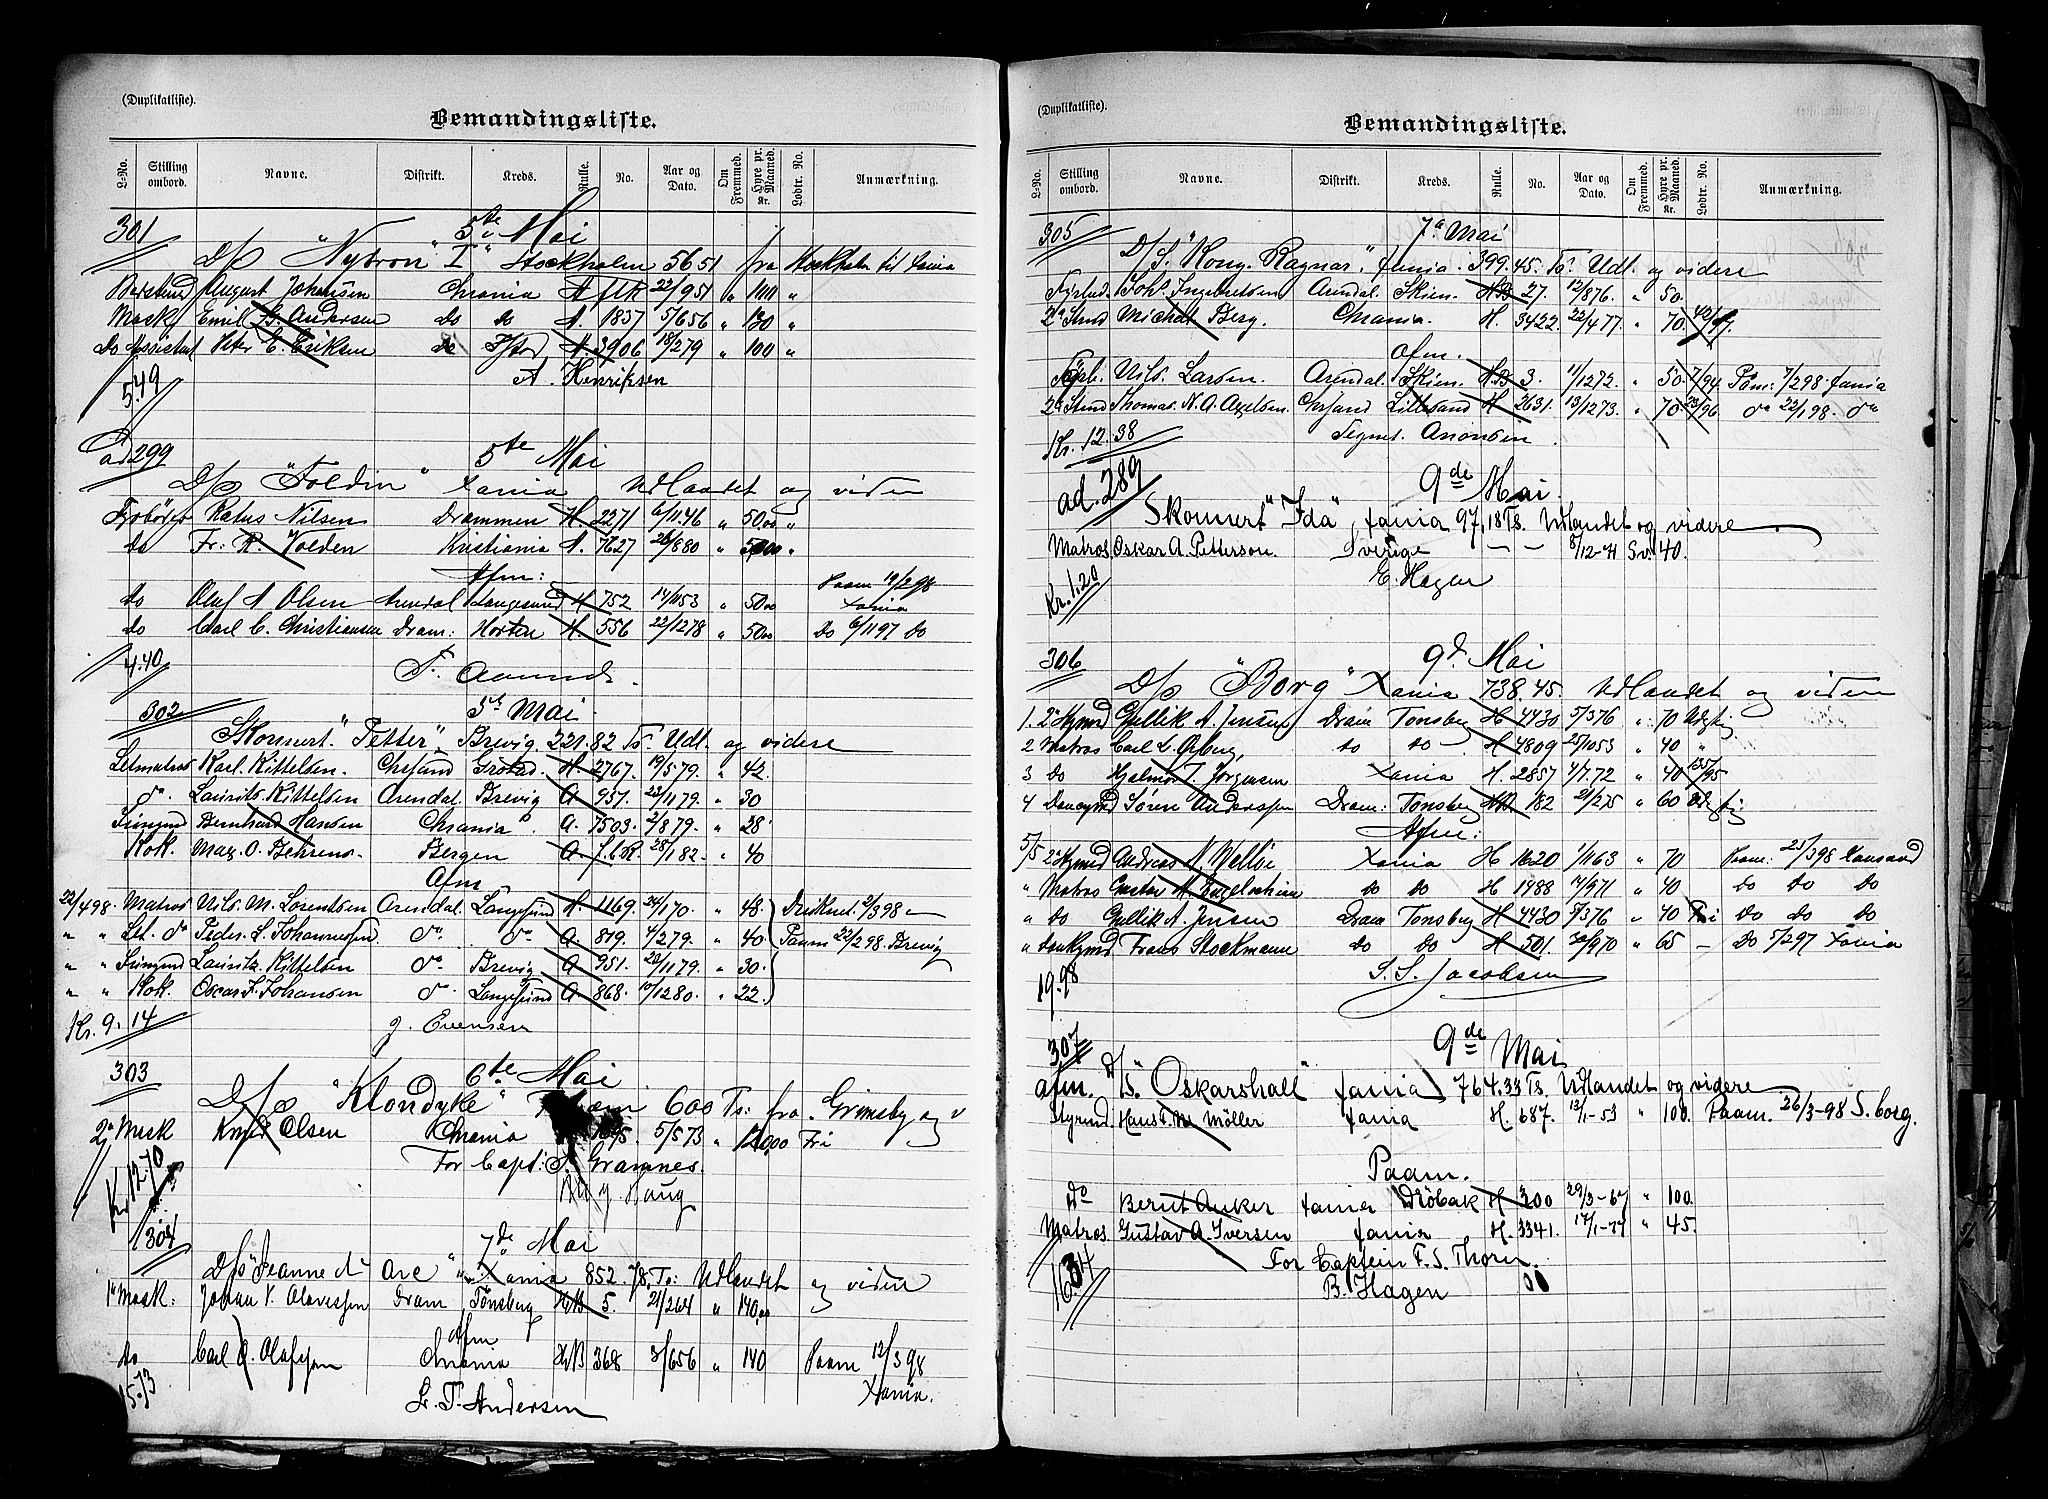 (Duplikatliste).
Bemandingsliste.
L-No. Stilling ombord. Navne. Distrikt. Kreds. Rulle. No. Aar og Dato. Om Fremmed. Hyre pr. Maaned. Kr. Lodtr. No. Anmærkning.
301 5te Mai
D/S "Nybron" I" Stockholm 5651 fra Stockholm til Xania
August Johansen Chrania A flk 22/951 " 100 "
Mask Emil B. Andersen do do A. 1837 5/656 " 130 "
do Assistent Peter E. Eriksen do A. 3906 18/279 " 100 "
A. Henriksen
5.49
ad 299 5te Mai
D/S "Foldin" Xania Udlandet og videre
Fyrbøder Ratus Nilsen Drammen H 2271 6/1146 " 50.00 "
do Fr: R. Volden Kristiania A. 7627 26/880 " 50.00 "
Afm:
do Oluf A Olsen Arendal Langesund H 752 14/1153 " 50.00 Paam 19/298 Xania
do Carl C. Christiansen Dram: Horten H 556 22/1278 " 50.00 do 6/1197 do
4.40 T. Aamund
302 5te Mai
Skonnert "Petter", Brevig. 221.82 Ts. Udl. og videre
Letmatros Karl. Kittelsen. Chrsand H. 2767. 19/579. " 42.
do. Laurits Kittelsen Arendal. Brevig A. 951. 23/1179. " 30
Jungmd Bernhard Hansen Chrania A. 7503. 2/879. " 28.
Kok. Max. O. Behrens. Bergen A. 28/182. " 40
Afm
22/498. Matros Nils. M. Lorentsen Arendal. Langesund H. 1169. 24/170. " 48.
" " Let. do Peder. L. Johannessen do. do A. 819. 4/279. " 40 Paam 22/298. Brevig
" " Jungmd Lauritz. Kittelsen do Brevig A 951. 23/1179. " 30.
" " Kok. Oscar F. Johansen do Langesund A 868. 10/1280. " 22.
Kr. 9.14 J. Evensen
303 6te Mai
D/S "Klondyke" 600 Ts: fra Grimsby og v
2d Mask Knud Olsen Chrania 5/573 " 120.00 Fri
For Capt: Gramnes.
Haug
Kr 12.70
304 7de Mai
D/S "Jeanne d' Arc" Xania 852. 78. Ts: Udlandet og videre
1ste Mask: Johan V. Olavessen Dram Tønsberg HB 5. 21/264 " 140.00
Afm
do Carl O. Olafsen Chrania HB 368 3/656 " 140 Paam 12/398 Xania.
15.73 L. T. Andersen
(Duplikatliste).
Bemandingsliste.
L-No. Stilling ombord. Navne. Distrikt. Kreds. Rulle. No. Aar og Dato. Om Fremmed. Hyre pr. Maaned. Kr. Lodtr. No. Anmærkning.
305 7de Mai
D/S. "Kong. Ragnar". Xania. 399.45. Ts. Udl. og videre
Joh. Ingebretsen Arendal. Skien. HB 27. 12/876. " 50.
2d Stmd Michal Berg. Chrania. H. 3422. 22/477. " 70.
Afm.
Fyrb. Nils. Larsen. Arendal. Skien. HB 3. 11/1272. " 50. 7/94. Paam: 7/298. Xania
2d Stmd Thomas. N. A. Axelsen. Chrsand Lillesand H 2631. 13/1273. " 70 23/96 do 22/198. do
Kr. 12.38 Segnet. Anonsen.
ad. 289 9de Mai.
Skonnert "Ida", Xania 97,18 Ts. Udlandet og videre
Matros Oskar A. Petterson. Sverige — — 8/12-71 Sv. 40.
E. Hagen
Kr. 1.20
306 9de Mai
D/S "Borg" Xania 738.45. Udlandet og videre
1. 2d Stymd Gullik A. Jensen Dram Tønsberg H 4430 5/376 " 70
2 Matros Carl L. Ørberg do do H 4809 25/1053 " 40 "
3 do Hjalmar T. Jørgensen Xania H. 2857 4/7.72 " 40
4 Søren Anderssen Dram: Tønsberg HB 182 21/275 " 60
Afm:
5/5 2d Stymd Andreas N. Xania H 1620 1/1163 " 70 Paam: 23/398
" Matros Gustav A. Engebretsen do do H 1988 14/971 " 40 do do do
" do Gullik A. Jensen Dram Tønsberg H 4430 5/376 " 40 Fri do do do
" Frans Stockmann do do H 501. 30/970 " 65 — do 5/297 Xania
19.98 S. S. Jacobsen
307 9de Mai
afm. D/S. "Oskarshall" Xania 764.33 Ts. Udlandet og videre
Styrmd. Hans F. M. Möller Xania H. 687. 12/1-53 " 100. Paam. 26/3-98 S.borg.
Paam.
do Bernt Anker Xania Dröbak H. 200 29/3-67 " 100.
Matros. Gustav A. Iversen Xania H. 3341. 17/1-77 " 45.
For Captein F. S. Thorn.
16.34 B. Hagen